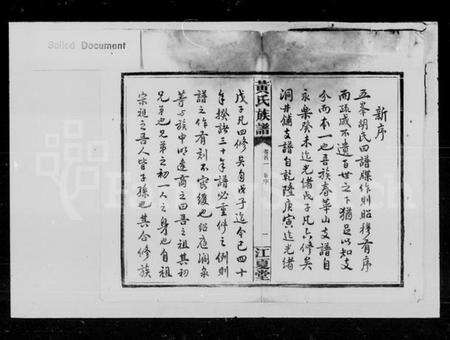 Soiled Document
新序
五峯胡氏四譜牒作則昭穆有序
而疏戚不遺百世之下猶足以知支
分而本一也吾族泰華山支譜自
永樂癸未迄光緒戊子凡六修矣
洞井鋪支譜自乾隆庚寅迄光緒
黃氏族譜
卷首一 新序
一
江夏堂
戊子凡四修矣自戊子迄今已四十
年揆諸三十年譜必重修之例則
譜之作有刻不容緩也紹庭潤泉
等與族中明達商之四吾之祖其初
兄弟也兄弟之初一人之身也自祖
宗視之吾人皆子孫也其合修族